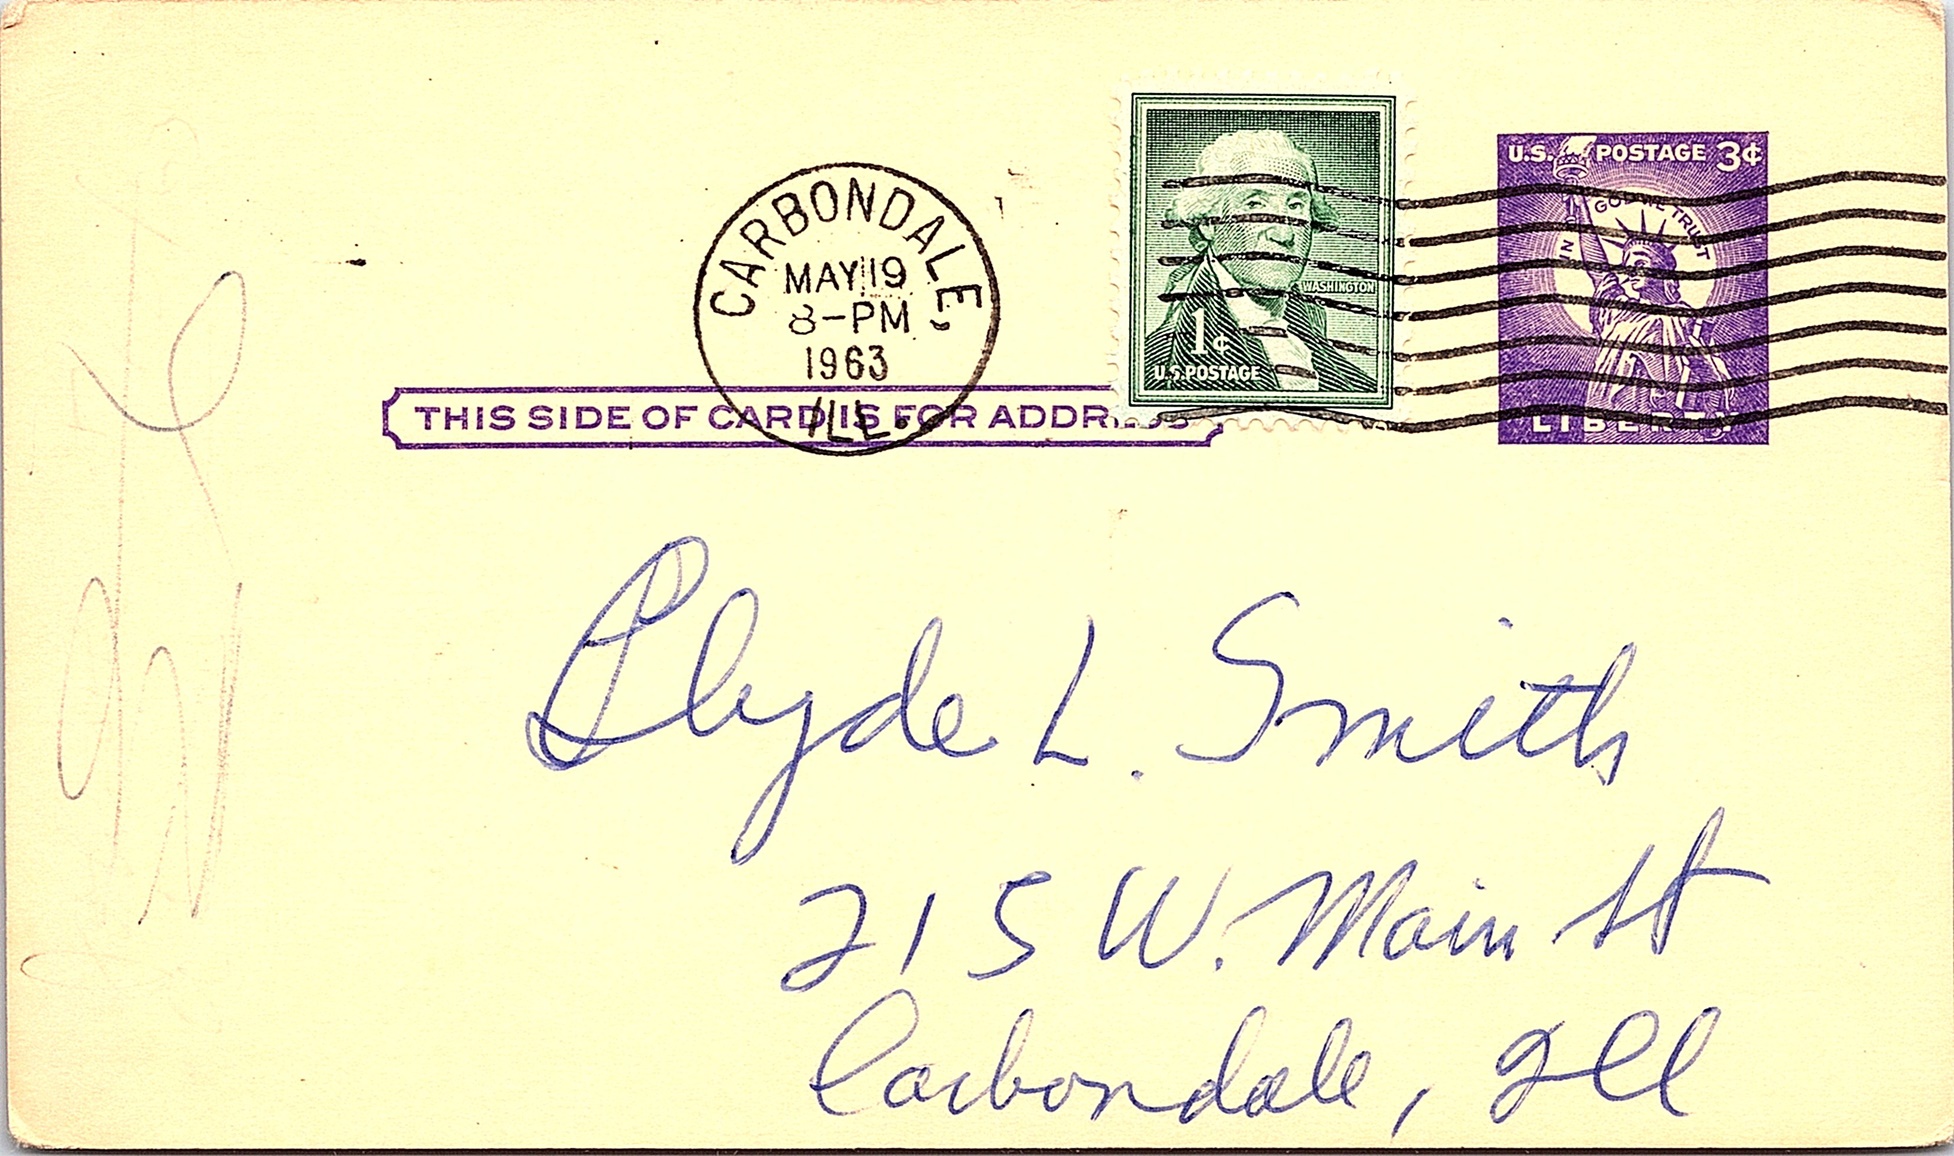 U.S. POSTAGE 3¢
IN GOD WE TRUST
LIBERTY
WASHINGTON
1¢
U.S. POSTAGE
CARBONDALE,
MAY 19
8-PM
1963
ILL.
THIS SIDE OF CARD IS FOR ADDRESS
Clyde L. Smith
215 W. Main St
Carbondale, Ill